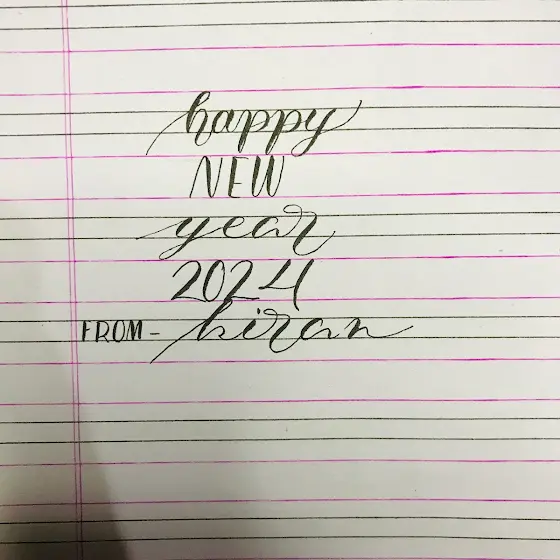 happy
NEW
year
2024
FROM - kiran